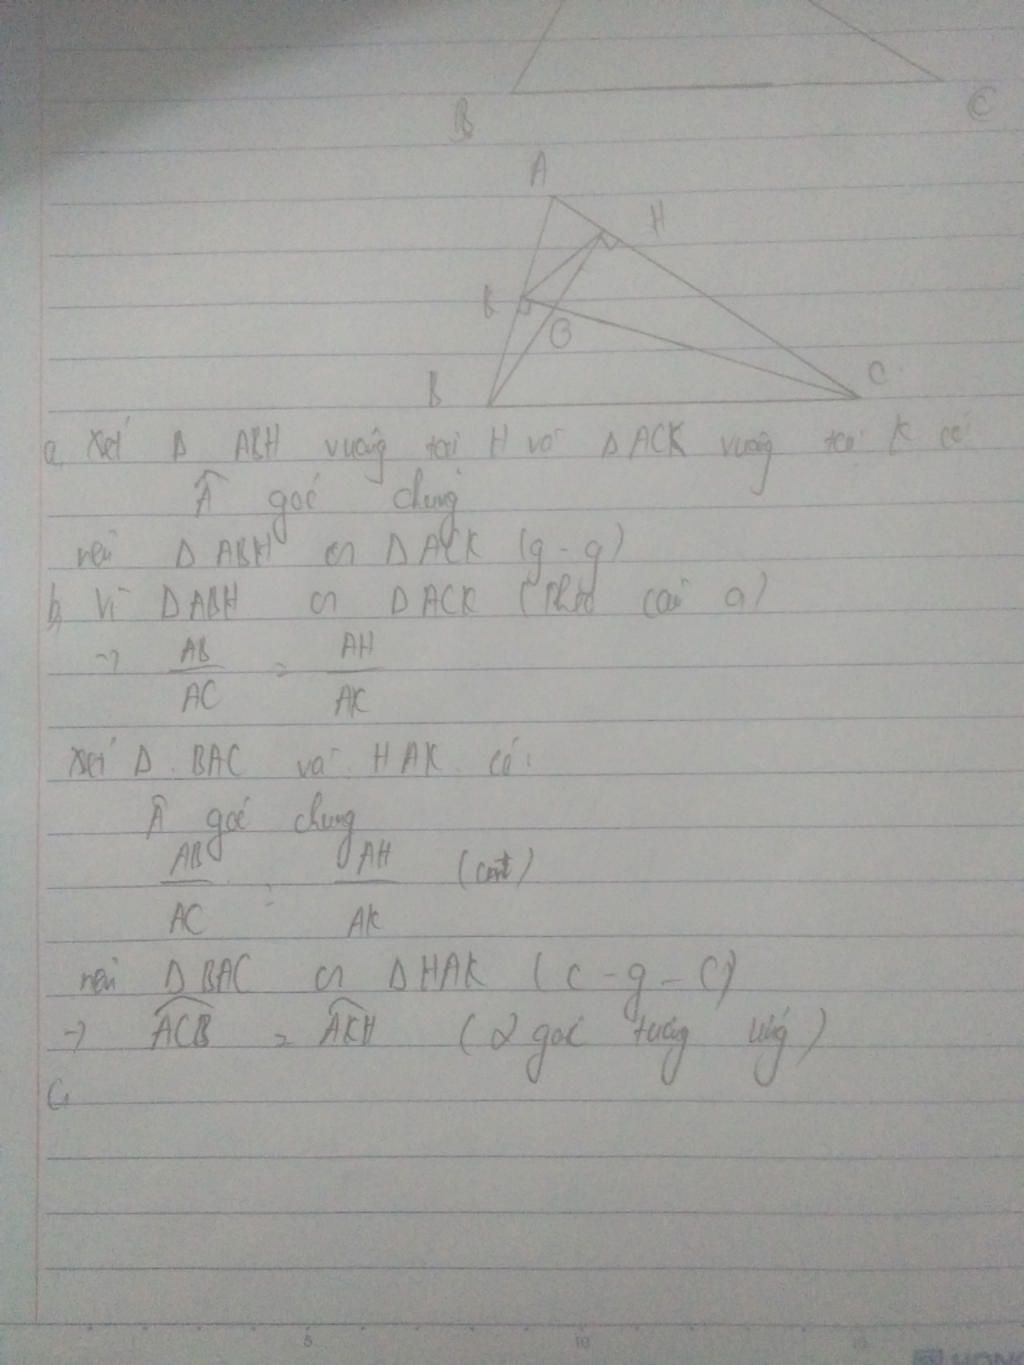 B C
A
H
K
O
B C
a, Xét Δ ABH vuông tại H và ΔACK vuông tại K có
Â góc chung
nên ΔABH ∽ ΔACK (g-g)
b, Vì ΔABH ∽ ΔACK (theo câu a)
→ AB/AC = AH/AK
Xét Δ BAC và HAK có:
Â góc chung
AB/AC = AH/AK (cmt)
nên ΔBAC ∽ ΔHAK (c-g-c)
→ ACB = AKH (2 góc tương ứng)
c,
5 10